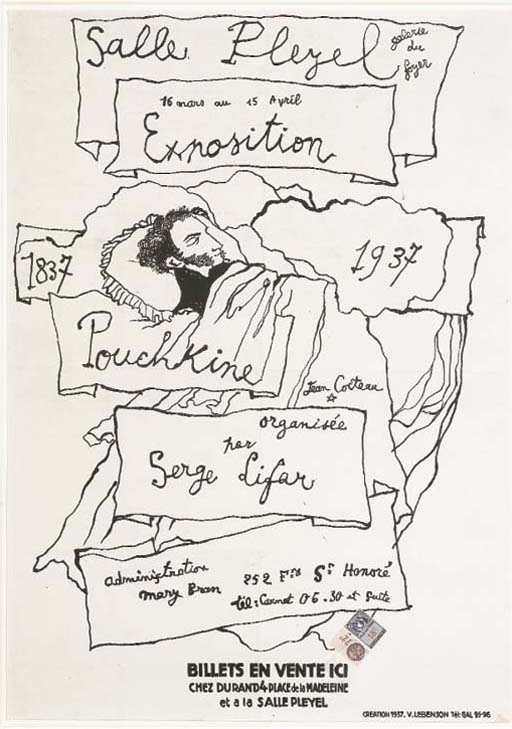 Salle Pleyel
galerie
du
foyer
16 mars au 15 Avril
Exposition
1837
1937
Pouchkine
Jean Cocteau
organisée
par
Serge Lifar
administration
Mary Bran
252 Frg St Honoré
tél: Carnot 06.30 et suite
BILLETS EN VENTE ICI
CHEZ DURAND 4 PLACE de la MADELEINE
et a la SALLE PLEYEL
CREATION 1937. V. LEBENJON Tél: GAL